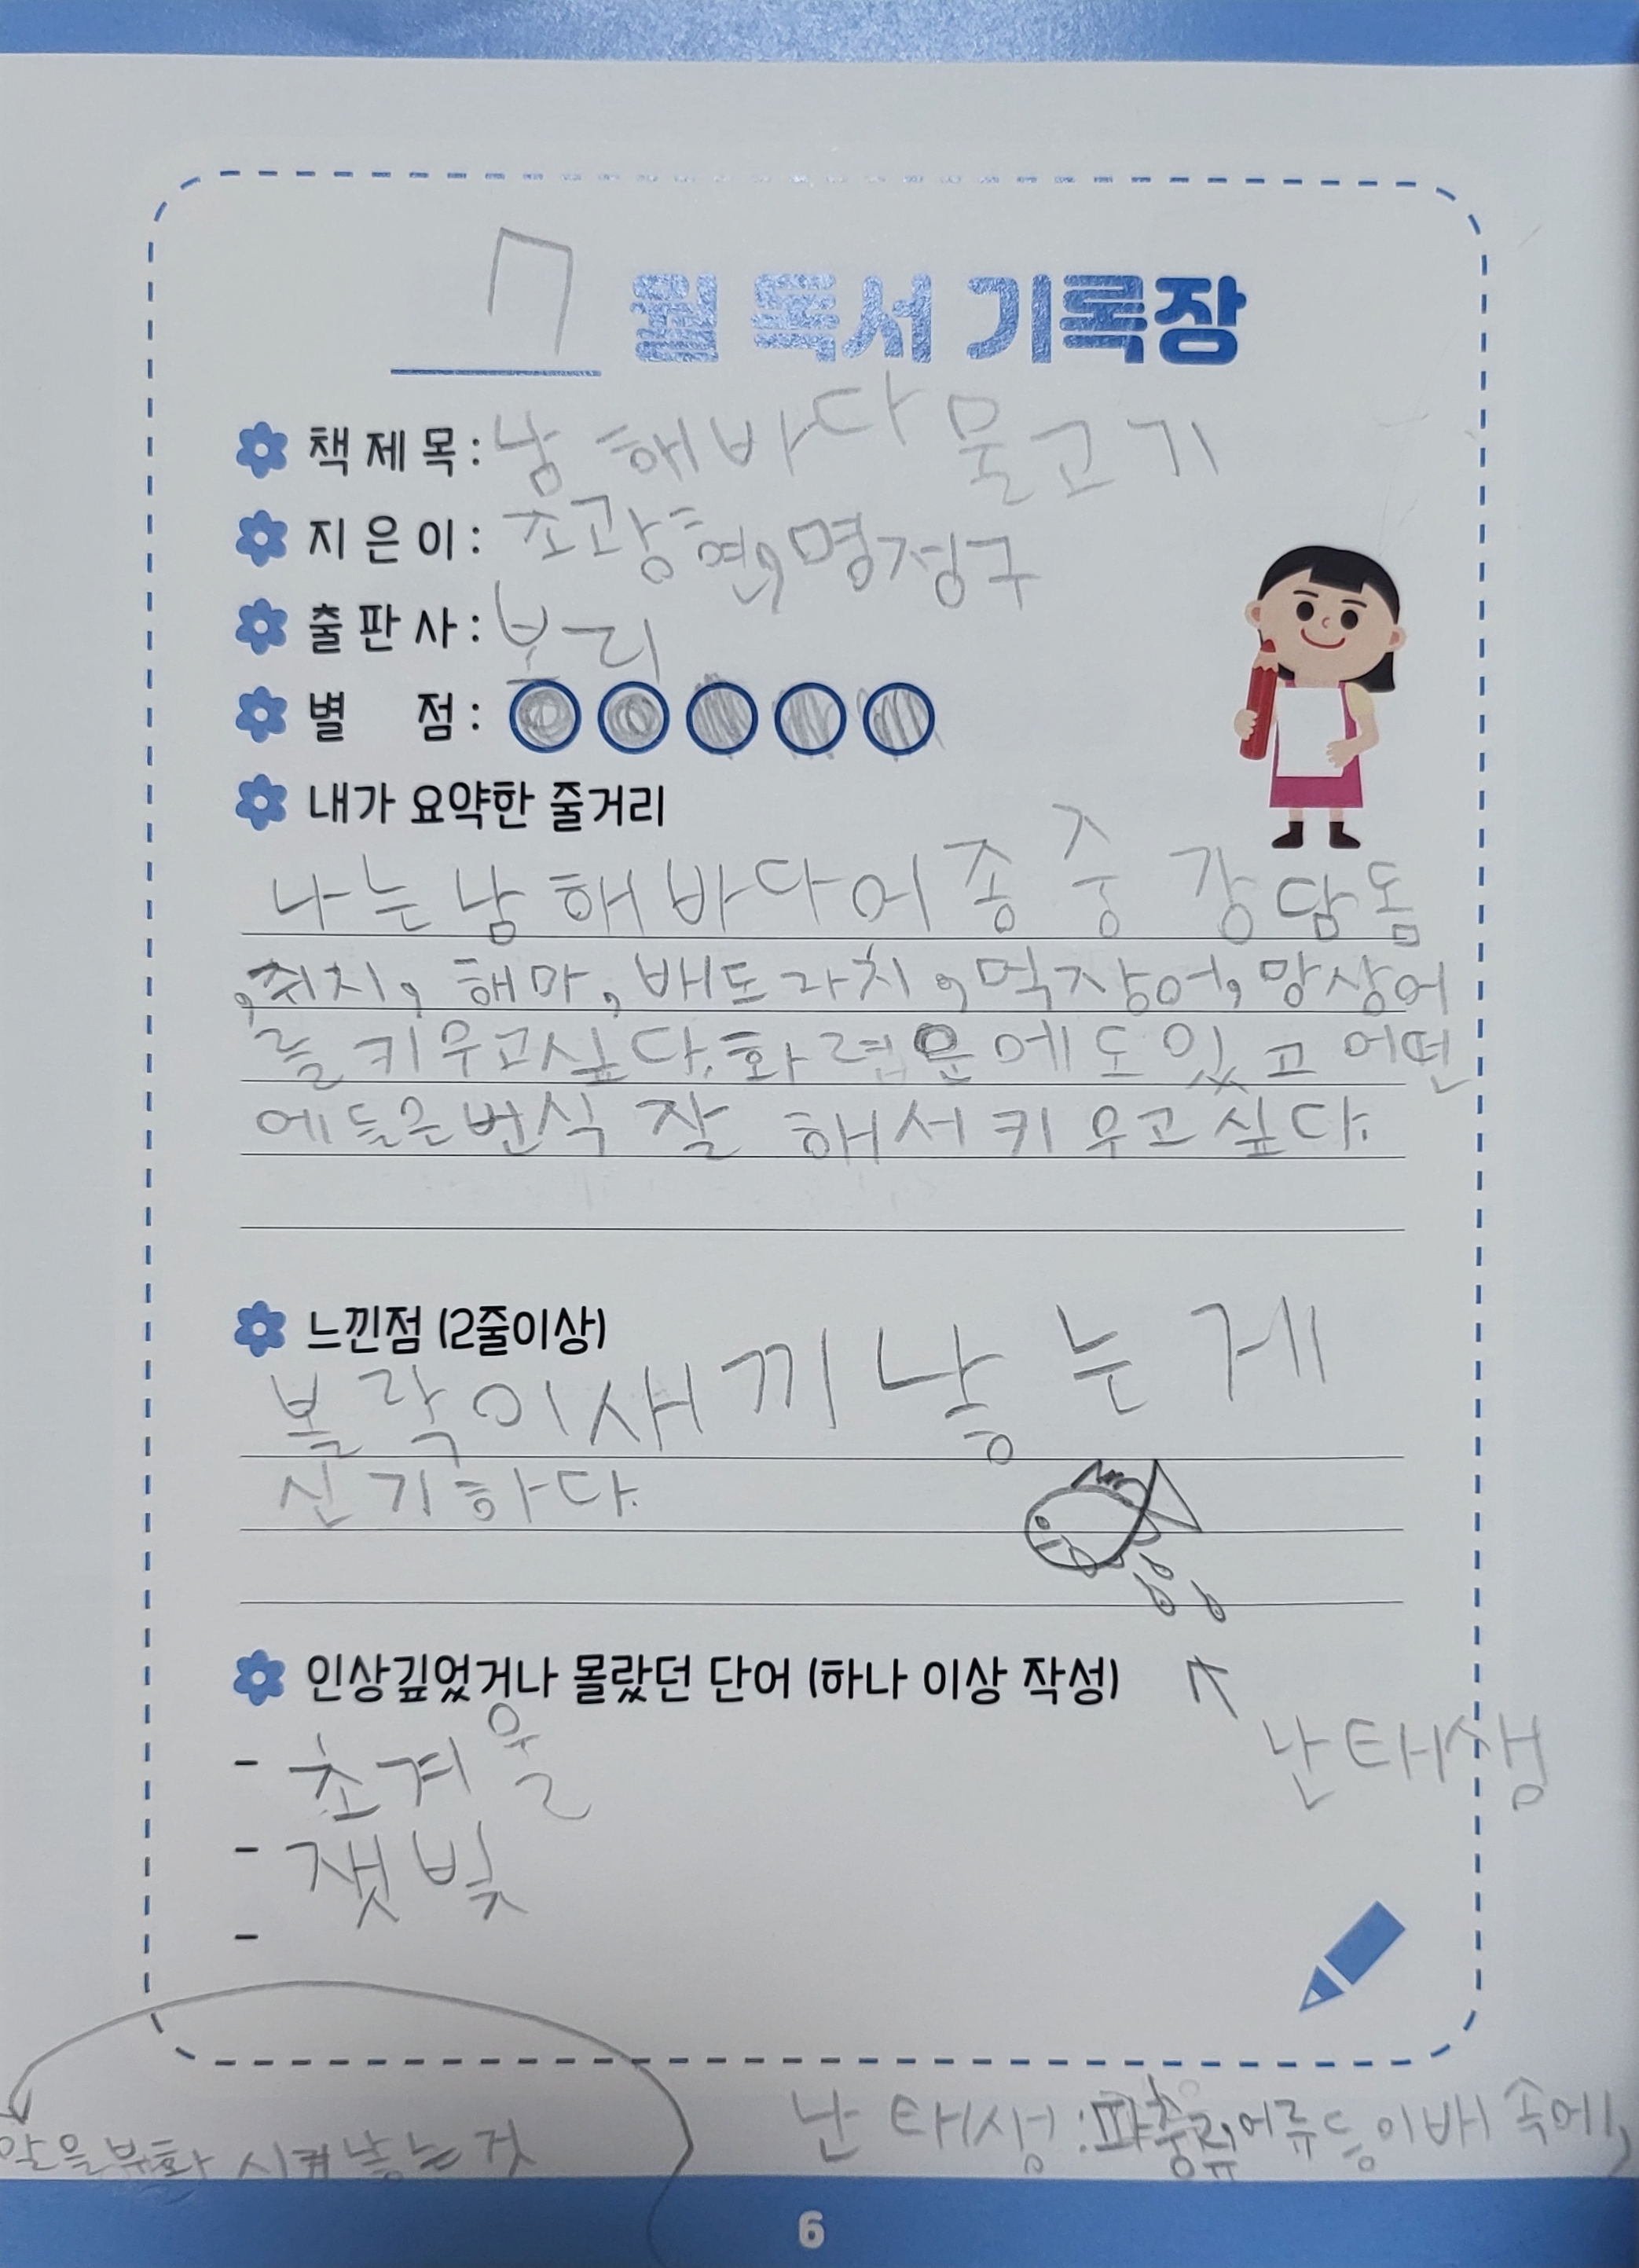 7월 독서 기록장
책제목: 남해바다물고기
지은이: 조광현,명정구
출판사: 보리
별 점:
내가 요약한 줄거리
나는남해바다어종중 강담돔
,쥐치, 해마, 배도라치,먹장어,망상어
를키우고싶다.화려운에도있고 어떤
에들은번식 잘 해서키우고싶다.
느낀점 (2줄이상)
볼락이새끼낳는게
신기하다.
인상깊었거나 몰랐던 단어 (하나 이상 작성)
난태생
- 초겨울
- 잿빛
-
난태생:파충류,어류등이배속에,
알을부화 시켜낳는것
6